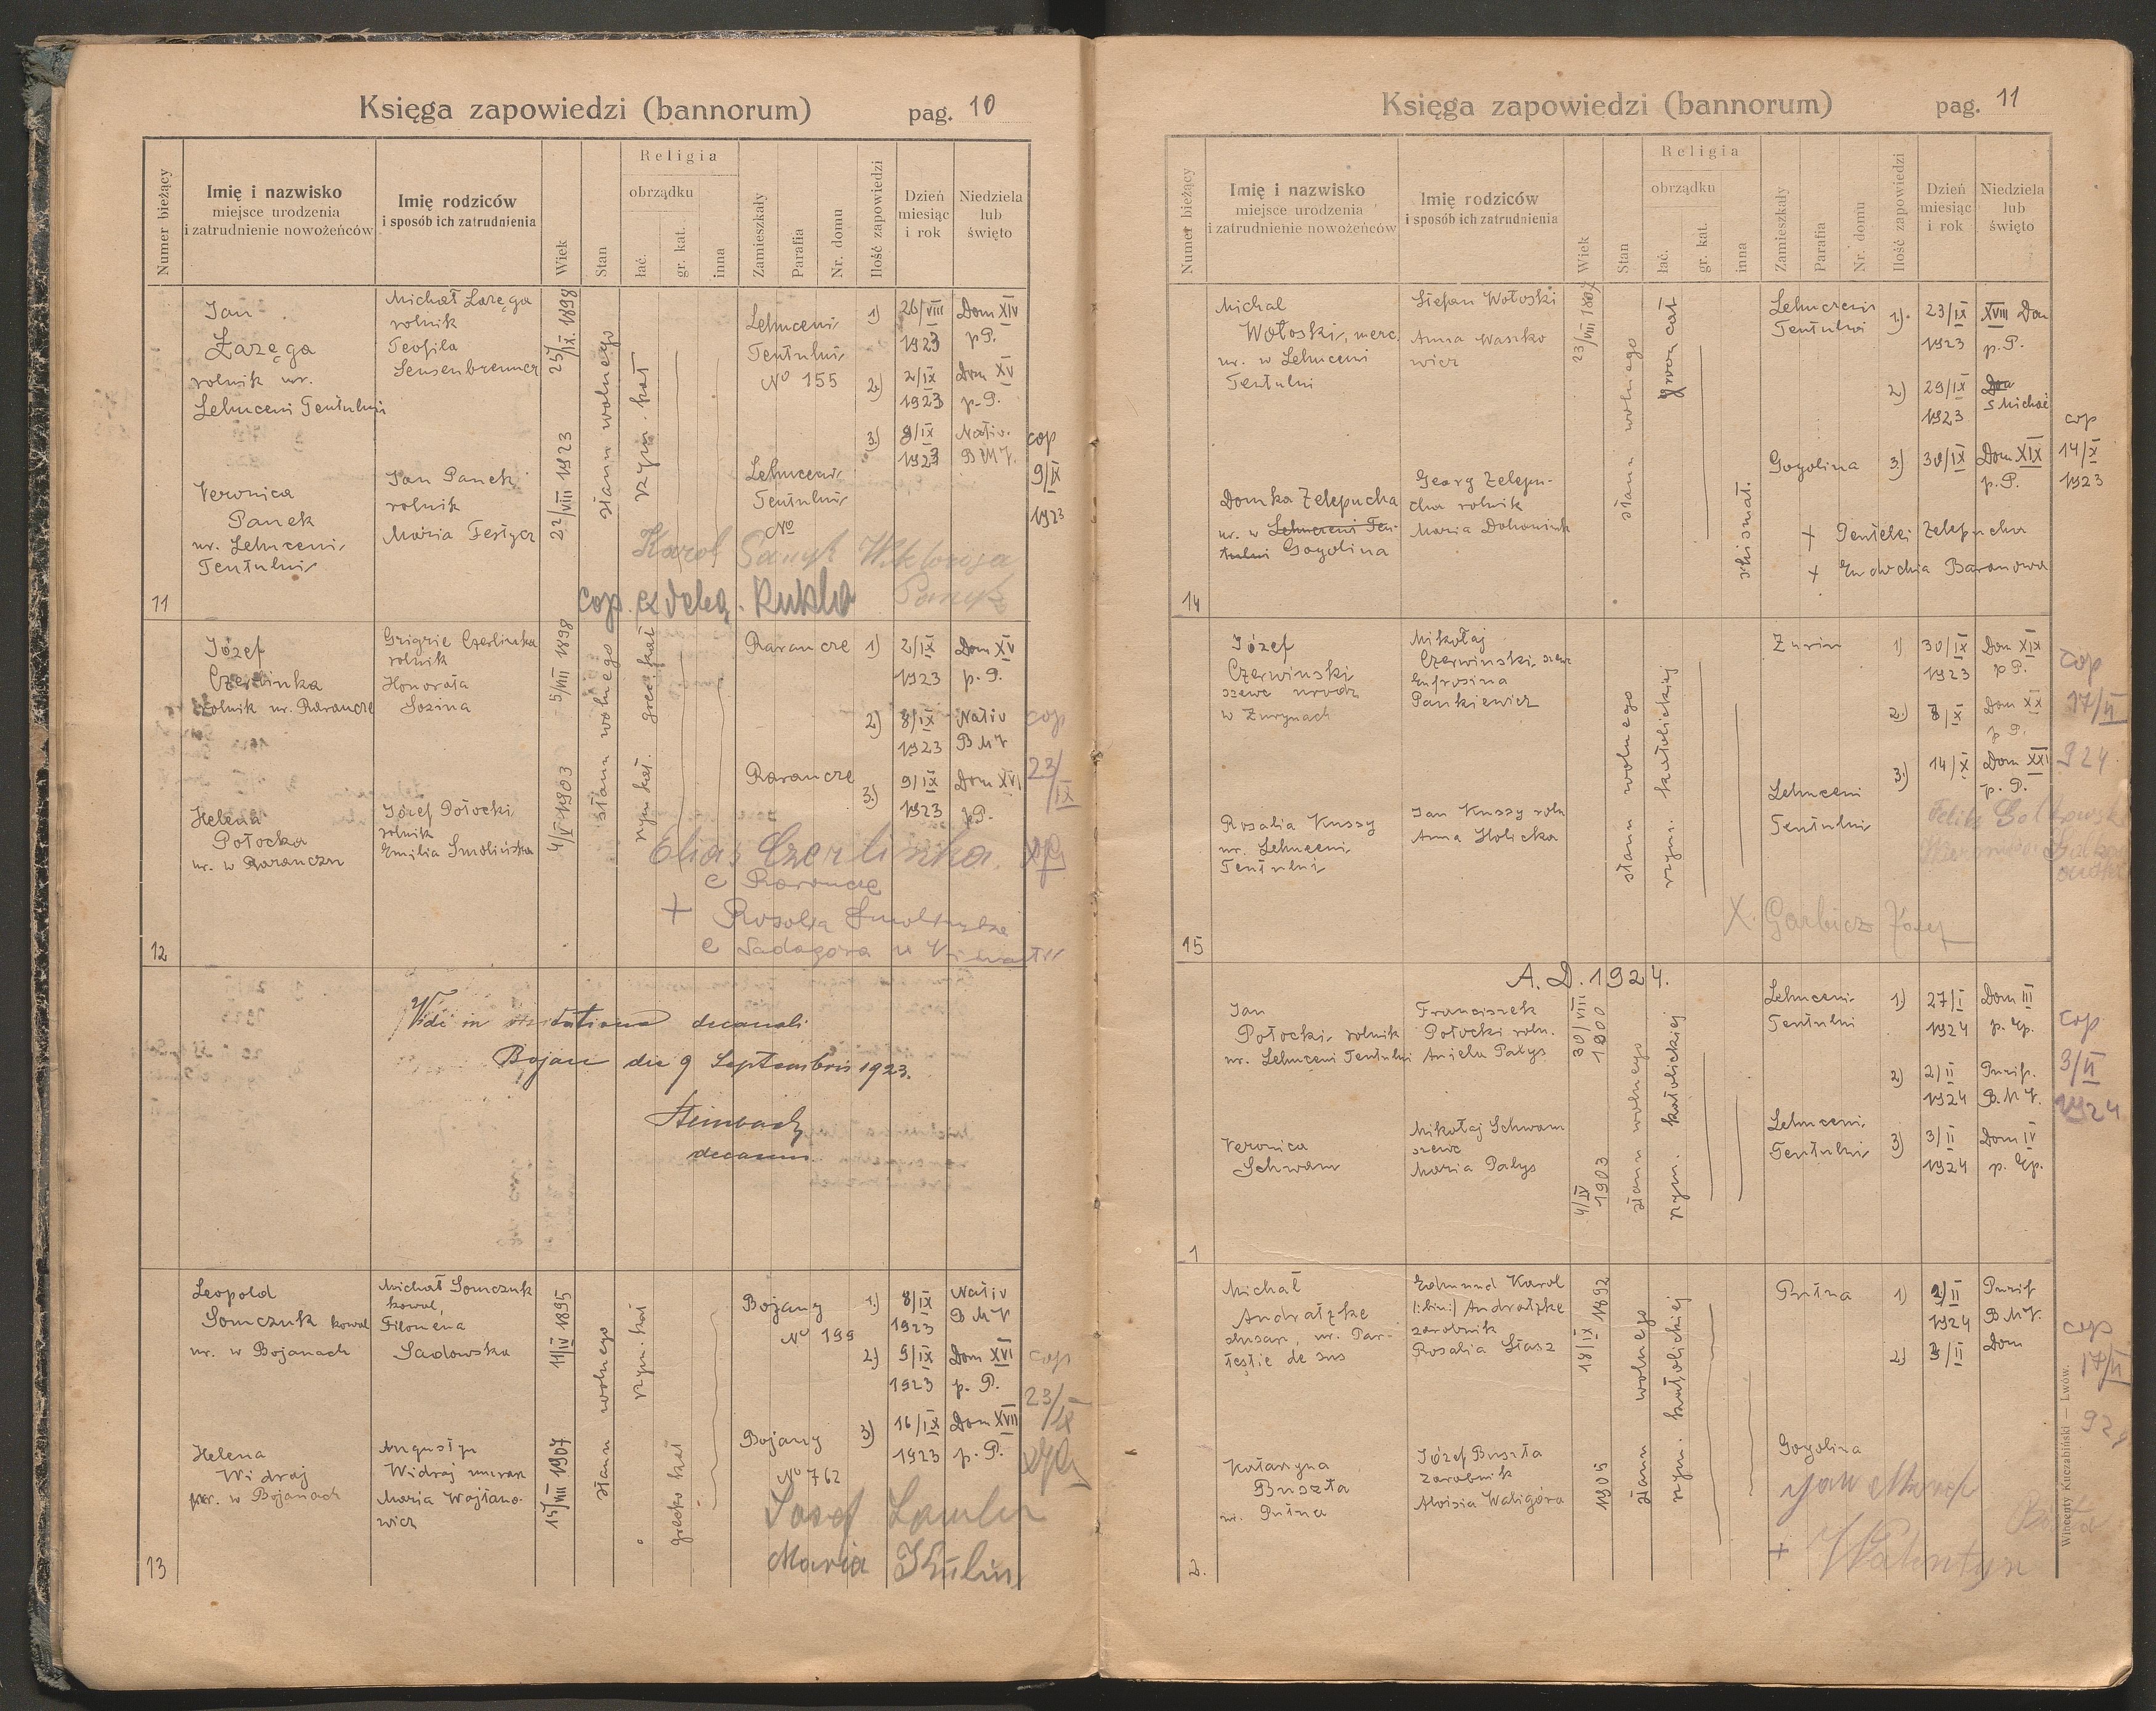 Księga zapowiedzi (bannorum)
pag. 10
Numer bieżący
Imię i nazwisko
miejsce urodzenia
i zatrudnienie nowożeńców
Imię rodziców
i sposób ich zatrudnienia
Wiek
Stan
Religia
obrządku
łać.
gr. kat.
inna
Zamieszkały
Parafia
Nr. domu
Ilość zapowiedzi
Dzień
miesiąc
i rok
Niedziela
lub
święto
11
Jan
Łazęga
rolnik ur.
Lehuceni Teutului
Michał Łazęga
rolnik
Teofila
Sensenbrenner
25/IX. 1898
stanu wolnego
rzym. kat
Lehuceni
Teutului
No 155
1) 26/VIII
1923
Dom XIV
p. P.
2) 2/IX
1923
Dom XV
p. P.
3) 8/IX
1923
Nativ.
B M V.
cop
9/IX
1923
Veronica
Panek
ur. Lehuceni
Teutului
Jan Panek
rolnik
Maria Festycz
22/VIII 1923
Lehuceni
Teutului
No
Karol Panyk Wiktorya
Panyk
cop. ex deleg. Kukla
12
Józef
Czerlinka
rolnik ur. Rarancze
Grigrie Czerlinka
rolnik
Honorata
Sozina
5/VIII 1898
stanu wolnego
greck. kat
Rarancze
1) 2/IX
1923
Dom XV
p. P.
2) 8/IX
1923
Nativ
B M V
3) 9/IX
1923
Dom XVI
p. P.
cop
23/IX
Helena
Potocka
ur. w Raranczu
Józef Potocki
rolnik
Emilia Smolinska
4/V 1903
rzym kat.
Rarancze
Elias Czerlinka
e Rarancze
+ Rosolia
e Sadagóra
Vidi in visitatione decanali
Bojan die 9 Septembris 1923.
Steinbach
decanus
13
Leopold
Somczuk kowal
ur. w Bojanach
Michał Somczuk
kowal,
Filomena
Sadowska
11/IV 1895
stanu wolnego
rzym. kat
Bojany
No 199
1) 8/IX
1923
Nativ
B M V
2) 9/IX
1923
Dom XVI
p. P.
3) 16/IX
1923
Dom XVII
p. P.
cop
23/IX
Helena
Widraj
ur. w Bojanach
Augustyn
Widraj murarz
Maria Wojtano-
wicz
15/VIII 1907
grecko kat
Bojany
No 762
Maria
Księga zapowiedzi (bannorum)
pag. 11
Numer bieżący
Imię i nazwisko
miejsce urodzenia
i zatrudnienie nowożeńców
Imię rodziców
i sposób ich zatrudnienia
Wiek
Stan
Religia
obrządku
łać.
gr. kat.
inna
Zamieszkały
Parafia
Nr. domu
Ilość zapowiedzi
Dzień
miesiąc
i rok
Niedziela
lub
święto
14
Michal
Wołoski, merc.
ur. w Lehuceni
Teutului
Stefan Wołoski
Anna Waszko
wicz
stan wolnego
Lehuczeni
Teutului
1) 23/IX
1923
XVIII Dom
p. P.
2) 29/IX
1923
S Michael
3) 30/IX
Dom XIX
p. P.
cop
14/X
1923
Domka Zelepucha
ur. w Lehuceni Teu-
tului Gogolina
Georg Zelepu-
cha rolnik
Maria Dohomiuk
shismat.
Gogolina
+ Pentelei Zelepucha
+ Eudochia Baranowa
15
Józef
Czerwinski
szewc urodz
w Zurynach
Mikołaj
Czerwinski, szewc
Eufrosina
Pankiewicz
stan wolnego
rzym. katolickiej
Zurin
1) 30/IX
1923
Dom XIX
p. P.
2) 7/X
Dom XX
p P.
3) 14/X
Dom XXI
p. P.
cop
17/II
924
Rosalia Kussy
ur. Lehuceni
Teutului
Jan Kussy roln
Anna Holicka
Lehuceni
Teutului
X. Garbicz Józef
A. D. 1924.
1
Jan
Potocki, rolnik
ur. Lehuceni Teutului
Franciszek
Potocki roln.
Aniela Palys
30/VIII
1900
stanu wolnego
rzym. katolickiej
Lehuceni
Teutului
1) 27/I
1924
Dom III
p. Ep.
2) 2/II
1924
Purif.
B. M V.
3) 3/II
1924
Dom IV
p. Ep.
cop
3/II
1924
Veronica
Schwam
Mikołaj Schwam
szewc
Maria Palys
4/IV
1903
Lehuceni
Teutului
2.
Michał
Andratzke
slusarz, ur. Par-
teștie de sus
Edmund Karol
/:bin:/ Andratzke
zarobnik
Rosalia Stasz
18/IX 1892
stanu wolnego
rzym. katolickiej
Putna
1) 2/II
1924
Purif
B M V.
2) 3/II
Dom
cop
17/II
Katarzyna
Buszta
ur. Putna
Józef Buszta
zarobnik
Aloisia Waligóra
1905
Gogolina
+ Walentyn
Wincenty Kuczabiński — Lwów.